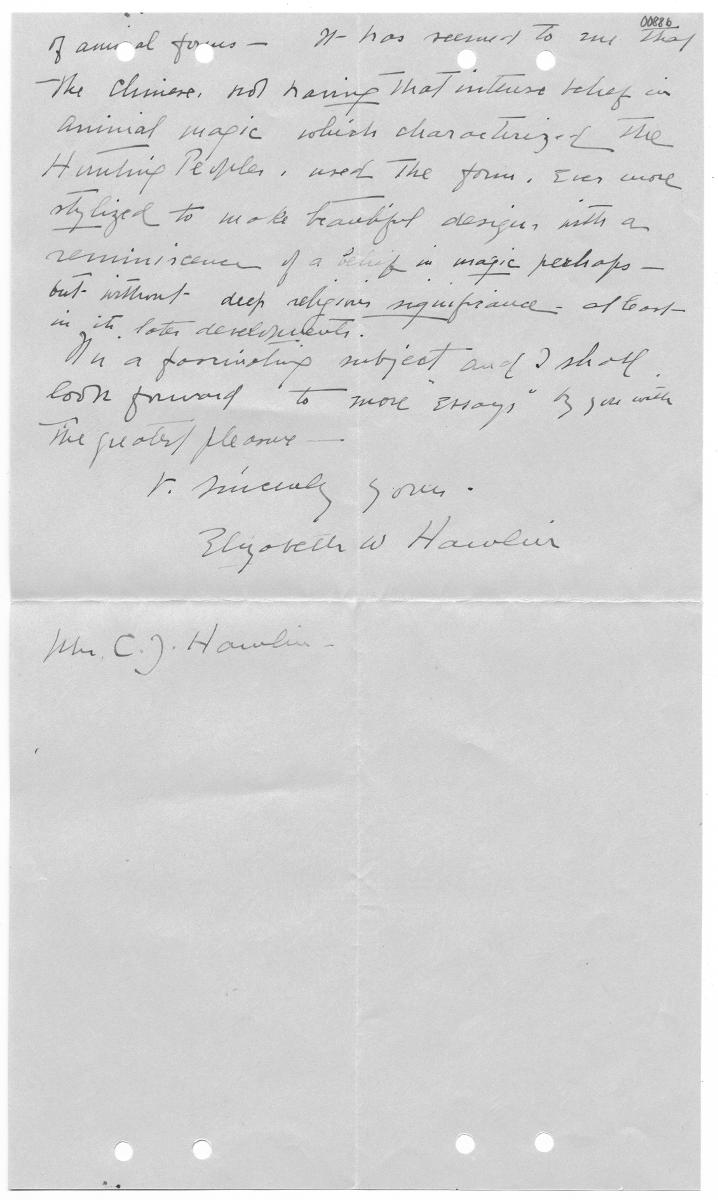 00886
of animal forms — It has seemed to me that
the Chinese, not having that intense belief in
animal magic which characterized the
Hunting Peoples, used the form, ever more
stylized to make beautiful designs with a
reminiscence of a belief in magic perhaps —
but without deep religious significance — at least
in its later developments.
It's a fascinating subject and I shall
look forward to more "Essays" by you with
the greatest pleasure —
V. sincerely yours.
Elizabeth W
Mrs. C. J.